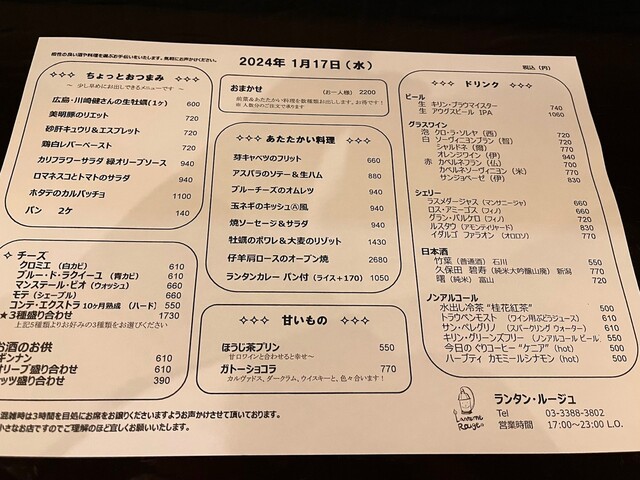 相性の良い酒や料理を選ぶお手伝いをいたします。気軽にお声かけください。
2024年 1月17日（水）
税込（円）
◇◇◇ ちょっとおつまみ ◇◇◇
～ 少し早めにお出しできるメニューです ～
広島・川崎健さんの生牡蠣(1ケ) 600
美明豚のリエット 720
砂肝キュウリ&エスプレット 720
鶏白レバーペースト 720
カリフラワーサラダ 緑オリーブソース 940
ロマネスコとトマトのサラダ 940
ホタテのカルパッチョ 1100
パン 2ケ 140
◇ チーズ
クロミエ（白カビ） 610
ブルー・ド・ラクイーユ（青カビ） 610
マンステール・ビオ（ウォッシュ） 660
モテ（シェーブル） 660
コンテ・エクストラ 10ヶ月熟成（ハード） 550
★3種盛り合わせ 1730
上記5種類よりお好みの3種類をお選びください
お酒のお供
ギンナン 610
オリーブ盛り合わせ 610
ナッツ盛り合わせ 390
混雑時は3時間を目処にお席をお譲りくださいますようお声かけさせて頂いております。
小さなお店ですのでご理解のほど宜しくお願いいたします。
おまかせ （お一人様） 2200
前菜&あたたかい料理を数種類お出しします。お得です！
※ 人数分のご注文で承ります
◇◇◇ あたたかい料理 ◇◇◇
芽キャベツのフリット 660
アスパラのソテー&生ハム 880
ブルーチーズのオムレツ 940
玉ネギのキッシュⒶ風 940
焼ソーセージ&サラダ 940
牡蠣のポワレ&大麦のリゾット 1430
仔羊肩ロースのオーブン焼 2680
ランタンカレー パン付（ライス+170） 1050
◇◇◇ 甘いもの ◇◇◇
ほうじ茶プリン 550
甘口ワインと合わせると幸せ～
ガトーショコラ 770
カルヴァドス、ダークラム、ウイスキーと、色々合います！
◇◇◇ ドリンク ◇◇◇
ビール
生 キリン・ブラウマイスター 740
生 アウグスビール IPA 1060
グラスワイン
泡 クロ・ラ・ソレヤ（西） 720
白 ソーヴィニヨンブラン（智） 720
シャルドネ（爾） 770
オレンジワイン（伊） 940
赤 カベルネフラン（仏） 700
カベルネソーヴィニヨン（米） 770
サンジョベーゼ（伊） 830
シェリー
ラスメダージャス（マンサニージャ） 660
ロス・アミーゴス（フィノ） 660
グラン・バルケロ（フィノ） 660
ルスタウ（アモンティリャード） 660
イダルゴ ファラオン（オロロソ） 770
日本酒
竹葉（普通酒）石川 550
久保田 碧寿（純米大吟醸山廃）新潟 770
曙（純米）富山 720
ノンアルコール
水出し冷茶 “桂花紅茶” 500
トラウベンモスト （ワイン用ぶどうジュース） 600
サン・ペレグリノ （スパークリング ウォーター） 600
キリン・グリーンズフリー （ノンアルコール ビール） 550
今日の ぐりコーヒー “ケニア”（hot） 500
ハーブティ カモミールシナモン（hot） 500
Lanterne Rouge
ランタン・ルージュ
Tel 03-3388-3802
営業時間 17:00～23:00 L.O.